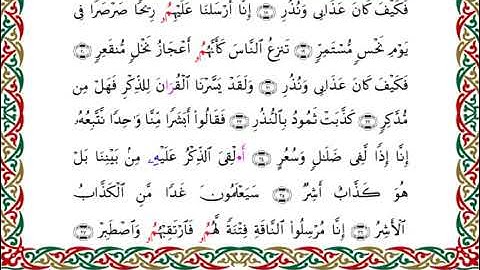 فَكَيْفَ كَانَ عَذَابِى وَنُذُرِ ١٨ إِنَّا أَرْسَلْنَا عَلَيْهِمُۥ رِيحًا صَرْصَرًا فِى
يَوْمِ نَحْسٍ مُّسْتَمِرٍّ ١٩ تَنزِعُ النَّاسَ كَأَنَّهُمُۥ أَعْجَازُ نَخْلٍ مُّنقَعِرٍ ٢٠
فَكَيْفَ كَانَ عَذَابِى وَنُذُرِ ٢١ وَلَقَدْ يَسَّرْنَا الْقُرَانَ لِلذِّكْرِ فَهَلْ مِن
مُّدَّكِرٍ ٢٢ كَذَّبَتْ ثَمُودُ بِالنُّذُرِ ٢٣ فَقَالُوا أَبَشَرًا مِّنَّا وَاحِدًا نَّتَّبِعُهُۥ
إِنَّا إِذًا لَّفِى ضَلَالٍ وَسُعُرٍ ٢٤ أَ•لْقِىَ الذِّكْرُ عَلَيْهِۦ مِن بَيْنِنَا بَلْ
هُوَ كَذَّابٌ أَشِرٌ ٢٥ سَيَعْلَمُونَ غَدًا مَّنِ الْكَذَّابُ
الْأَشِرُ ٢٦ إِنَّا مُرْسِلُوا النَّاقَةِ فِتْنَةً لَّهُمُۥ فَارْتَقِبْهُمُۥ وَاصْطَبِرْ ٢٧